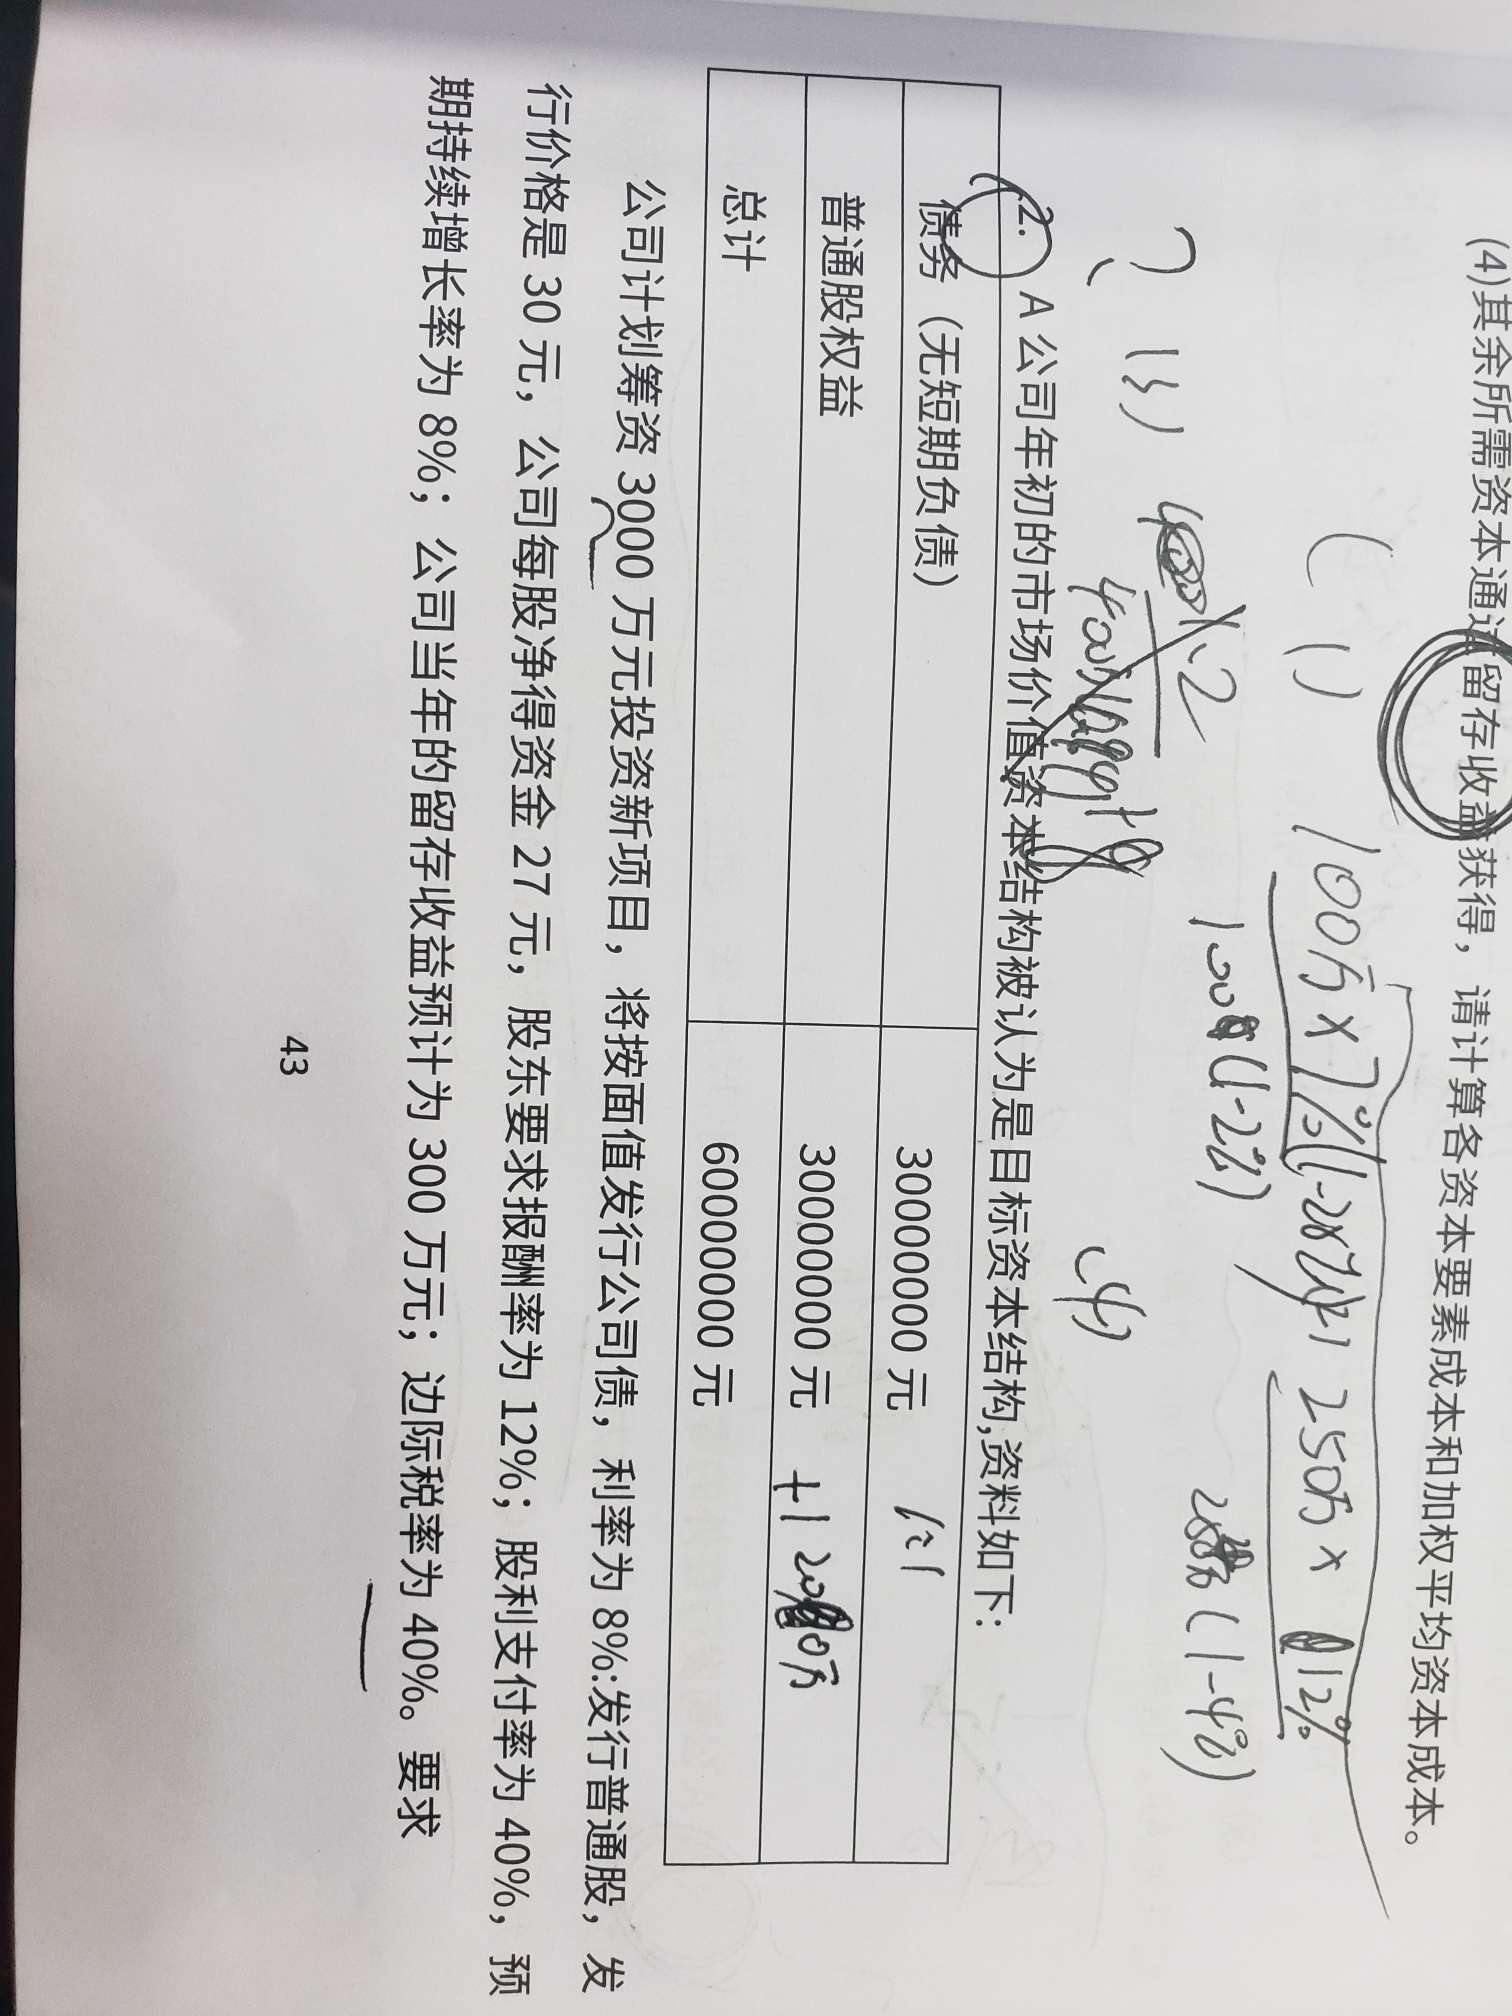 (4)其余所需资本通过留存收益获得，请计算各资本要素成本和加权平均资本成本。
(1) 100万×7%(1-20%) 250万× 12%
100 (1-2%) (1-4%)
? (3)
(4)
2. A 公司年初的市场价值资本结构被认为是目标资本结构,资料如下：
债务（无短期负债） 30000000 元 1:1
普通股权益 30000000 元 +1200万
总计 60000000 元
公司计划筹资 3000 万元投资新项目，将按面值发行公司债，利率为 8%:发行普通股，发
行价格是 30 元，公司每股净得资金 27 元，股东要求报酬率为 12%；股利支付率为 40%，预
期持续增长率为 8%；公司当年的留存收益预计为 300 万元；边际税率为 40%。要求
43